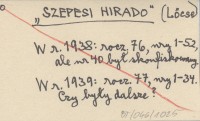 „SZEPESI HIRADÓ” (Lőcse)
W r. 1938: rocz. 76, nry 1-52,
ale nr 40 był skonfiskowany
W r. 1939: rocz. 77, nry 1-34.
Czy były dalsze?